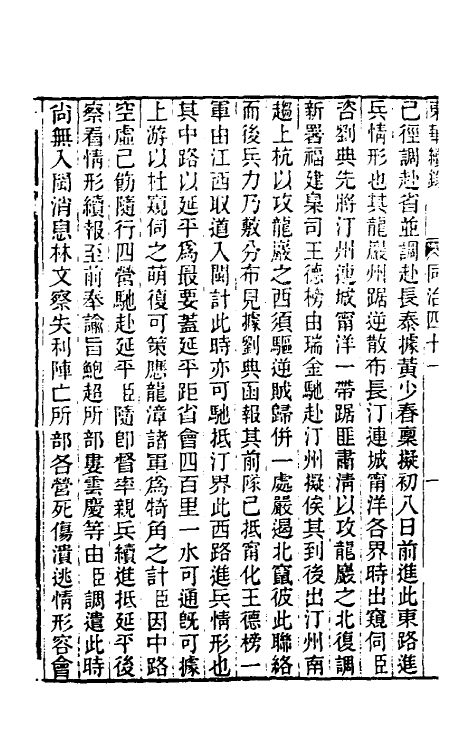 東華續錄 同治四十一 一
已徑調赴省並調赴長泰據黃少春稟擬初八日前進此東路進
兵情形也其龍巖州踞逆散布長汀連城甯洋各界時出窺伺臣
咨劉典先將汀州連城甯洋一帶踞匪肅清以攻龍巖之北復調
新署福建臬司王德榜由瑞金馳赴汀州擬俟其到後出汀州南
趨上杭以攻龍巖之西須驅逆賊歸併一處嚴遏北竄彼此聯絡
而後兵力乃敷分布見據劉典函報其前隊已抵甯化王德榜一
軍由江西取道入閩計此時亦可馳抵汀界此西路進兵情形也
其中路以延平爲最要蓋延平距省會四百里一水可通旣可據
上游以杜窺伺之萌復可策應龍漳諸軍爲犄角之計臣因中路
空虛已飭隨行四營馳赴延平臣隨卽督率親兵續進抵延平後
察看情形續報至前奉諭旨鮑超所部婁雲慶等由臣調遣此時
尙無入閩消息林文察失利陣亡所部各營死傷潰逃情形容會